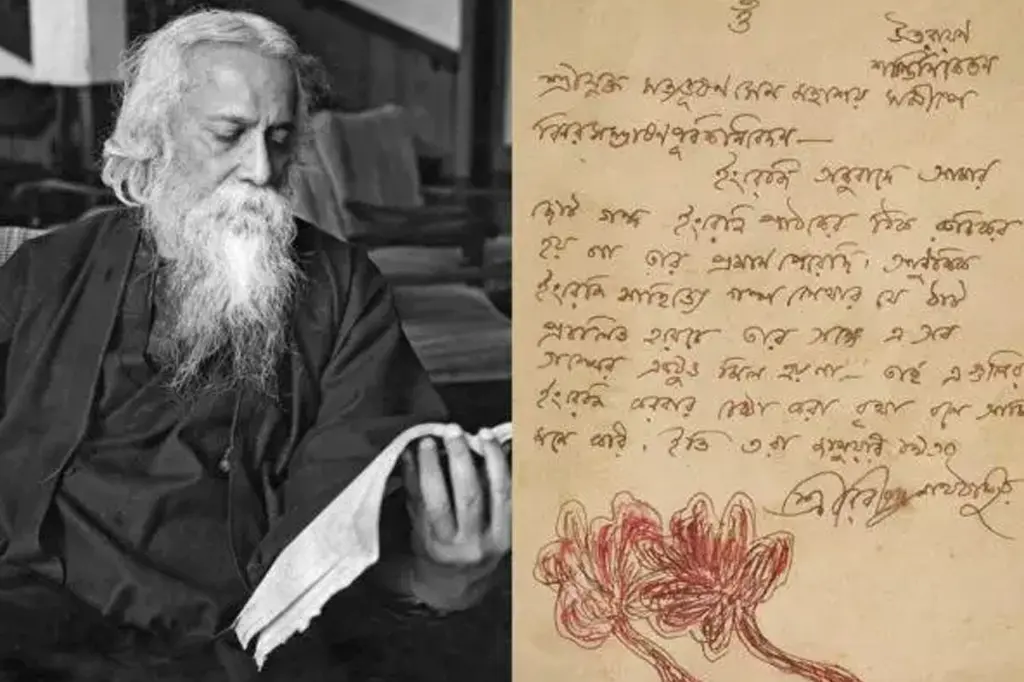 ওঁ
উত্তরায়ণ
শান্তিনিকেতন
শ্রীযুক্ত সত্যভূষণ সেন মহাশয় সমীপে
বিনয়সম্ভাষণপূর্বক নিবেদন—
ইংরেজি অনুবাদে আমার
ছোট গল্প ইংরেজি পাঠকের ঠিক রুচিকর
হয় না তার প্রমাণ পেয়েছি।
ইংরেজি সাহিত্যে গল্প লেখার যে ঠাট
প্রচলিত হয়েছে তার সঙ্গে এ সব
গল্পের একটুও মিল হয় না— তাই এগুলির
ইংরেজি করবার চেষ্টা করা বৃথা বলে আমি
মনে করি। ইতি ৩রা
শ্রীরবীন্দ্রনাথ ঠাকুর